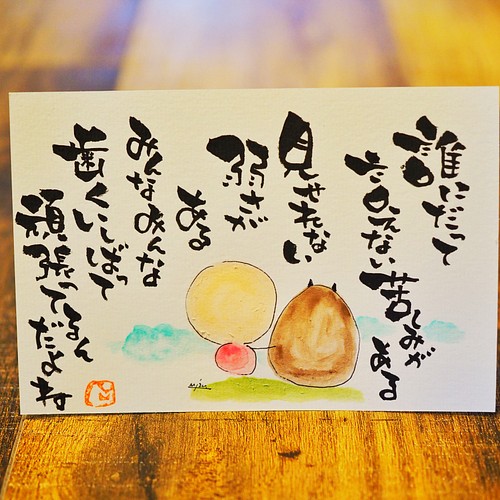 誰にだって
言えない苦しみが
ある
見せれない
弱さが
ある
みんなみんな
歯くいしばって
頑張ってるん
だよね